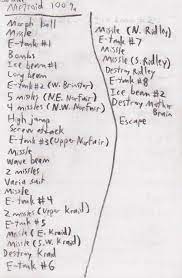 Metroid 100%
Morph ball
Missle
E-tank #1
Bombs
Ice beam #1
Long beam
E-tank #2 (W. Brinstar)
5 missles (N.E. Norfair)
4 missles (N.W. Norfair)
High jump
Screw attack
E-tank #3 (Upper Norfair)
Missle
Wave beam
2 missles
Varia suit
Missle
E-tank #4
2 missles (Upper Kraid)
E-tank #5
Missle (E. Kraid)
Missle (S.W. Kraid)
Destroy Kraid
E-tank #6
Missle (N. Ridley)
E-tank #7
Missle
Missle (S. Ridley)
Destroy Ridley
E-tank #8
Ice beam #2
Destroy Mother
Brain
Escape